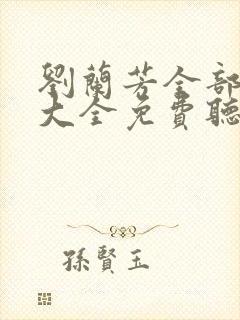 劉蘭芳全部
大全免費聽
孫賢玉